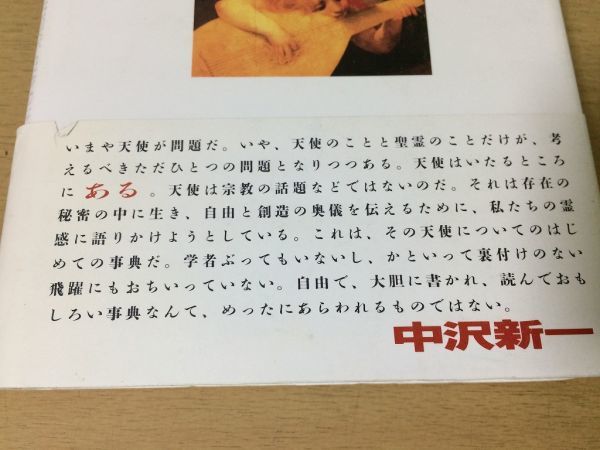 いまや天使が問題だ。いや、天使のことと聖霊のことだけが、考
えるべきただひとつの問題となりつつある。天使はいたるところ
にある。天使は宗教の話題などではないのだ。それは存在の
秘密の中に生き、自由と創造の奥儀を伝えるために、私たちの霊
感に語りかけようとしている。これは、その天使についてのはじ
めての事典だ。学者ぶってもいないし、かといって裏付けのない
飛躍にもおちいっていない。自由で、大胆に書かれ、読んでおも
しろい事典なんて、めったにあらわれるものではない。
中沢新一